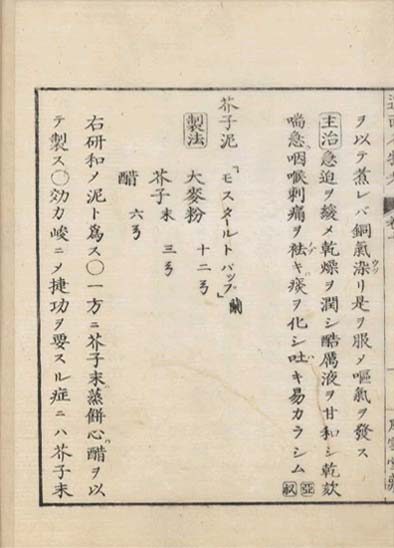 ヲ以テ煮レバ銅氣染リ是ヲ服メ嘔氣ヲ發ス
主治急迫ヲ緩メ乾燥ヲ潤シ酷厲液ヲ甘和シ乾欬
喘急、咽喉刺痛ヲ袪キ痰ヲ化シ吐キ易カラシム
芥子泥「モスタールトパップ」蘭
製法 大麥粉 十二ヲ
芥子末 三ヲ
醋 六ヲ
右研和メ泥ト爲ス〇一方ニ芥子末、蒸餅心、醋ヲ以
テ製ス〇効力峻ニメ捷功ヲ要スル症ニハ芥子末